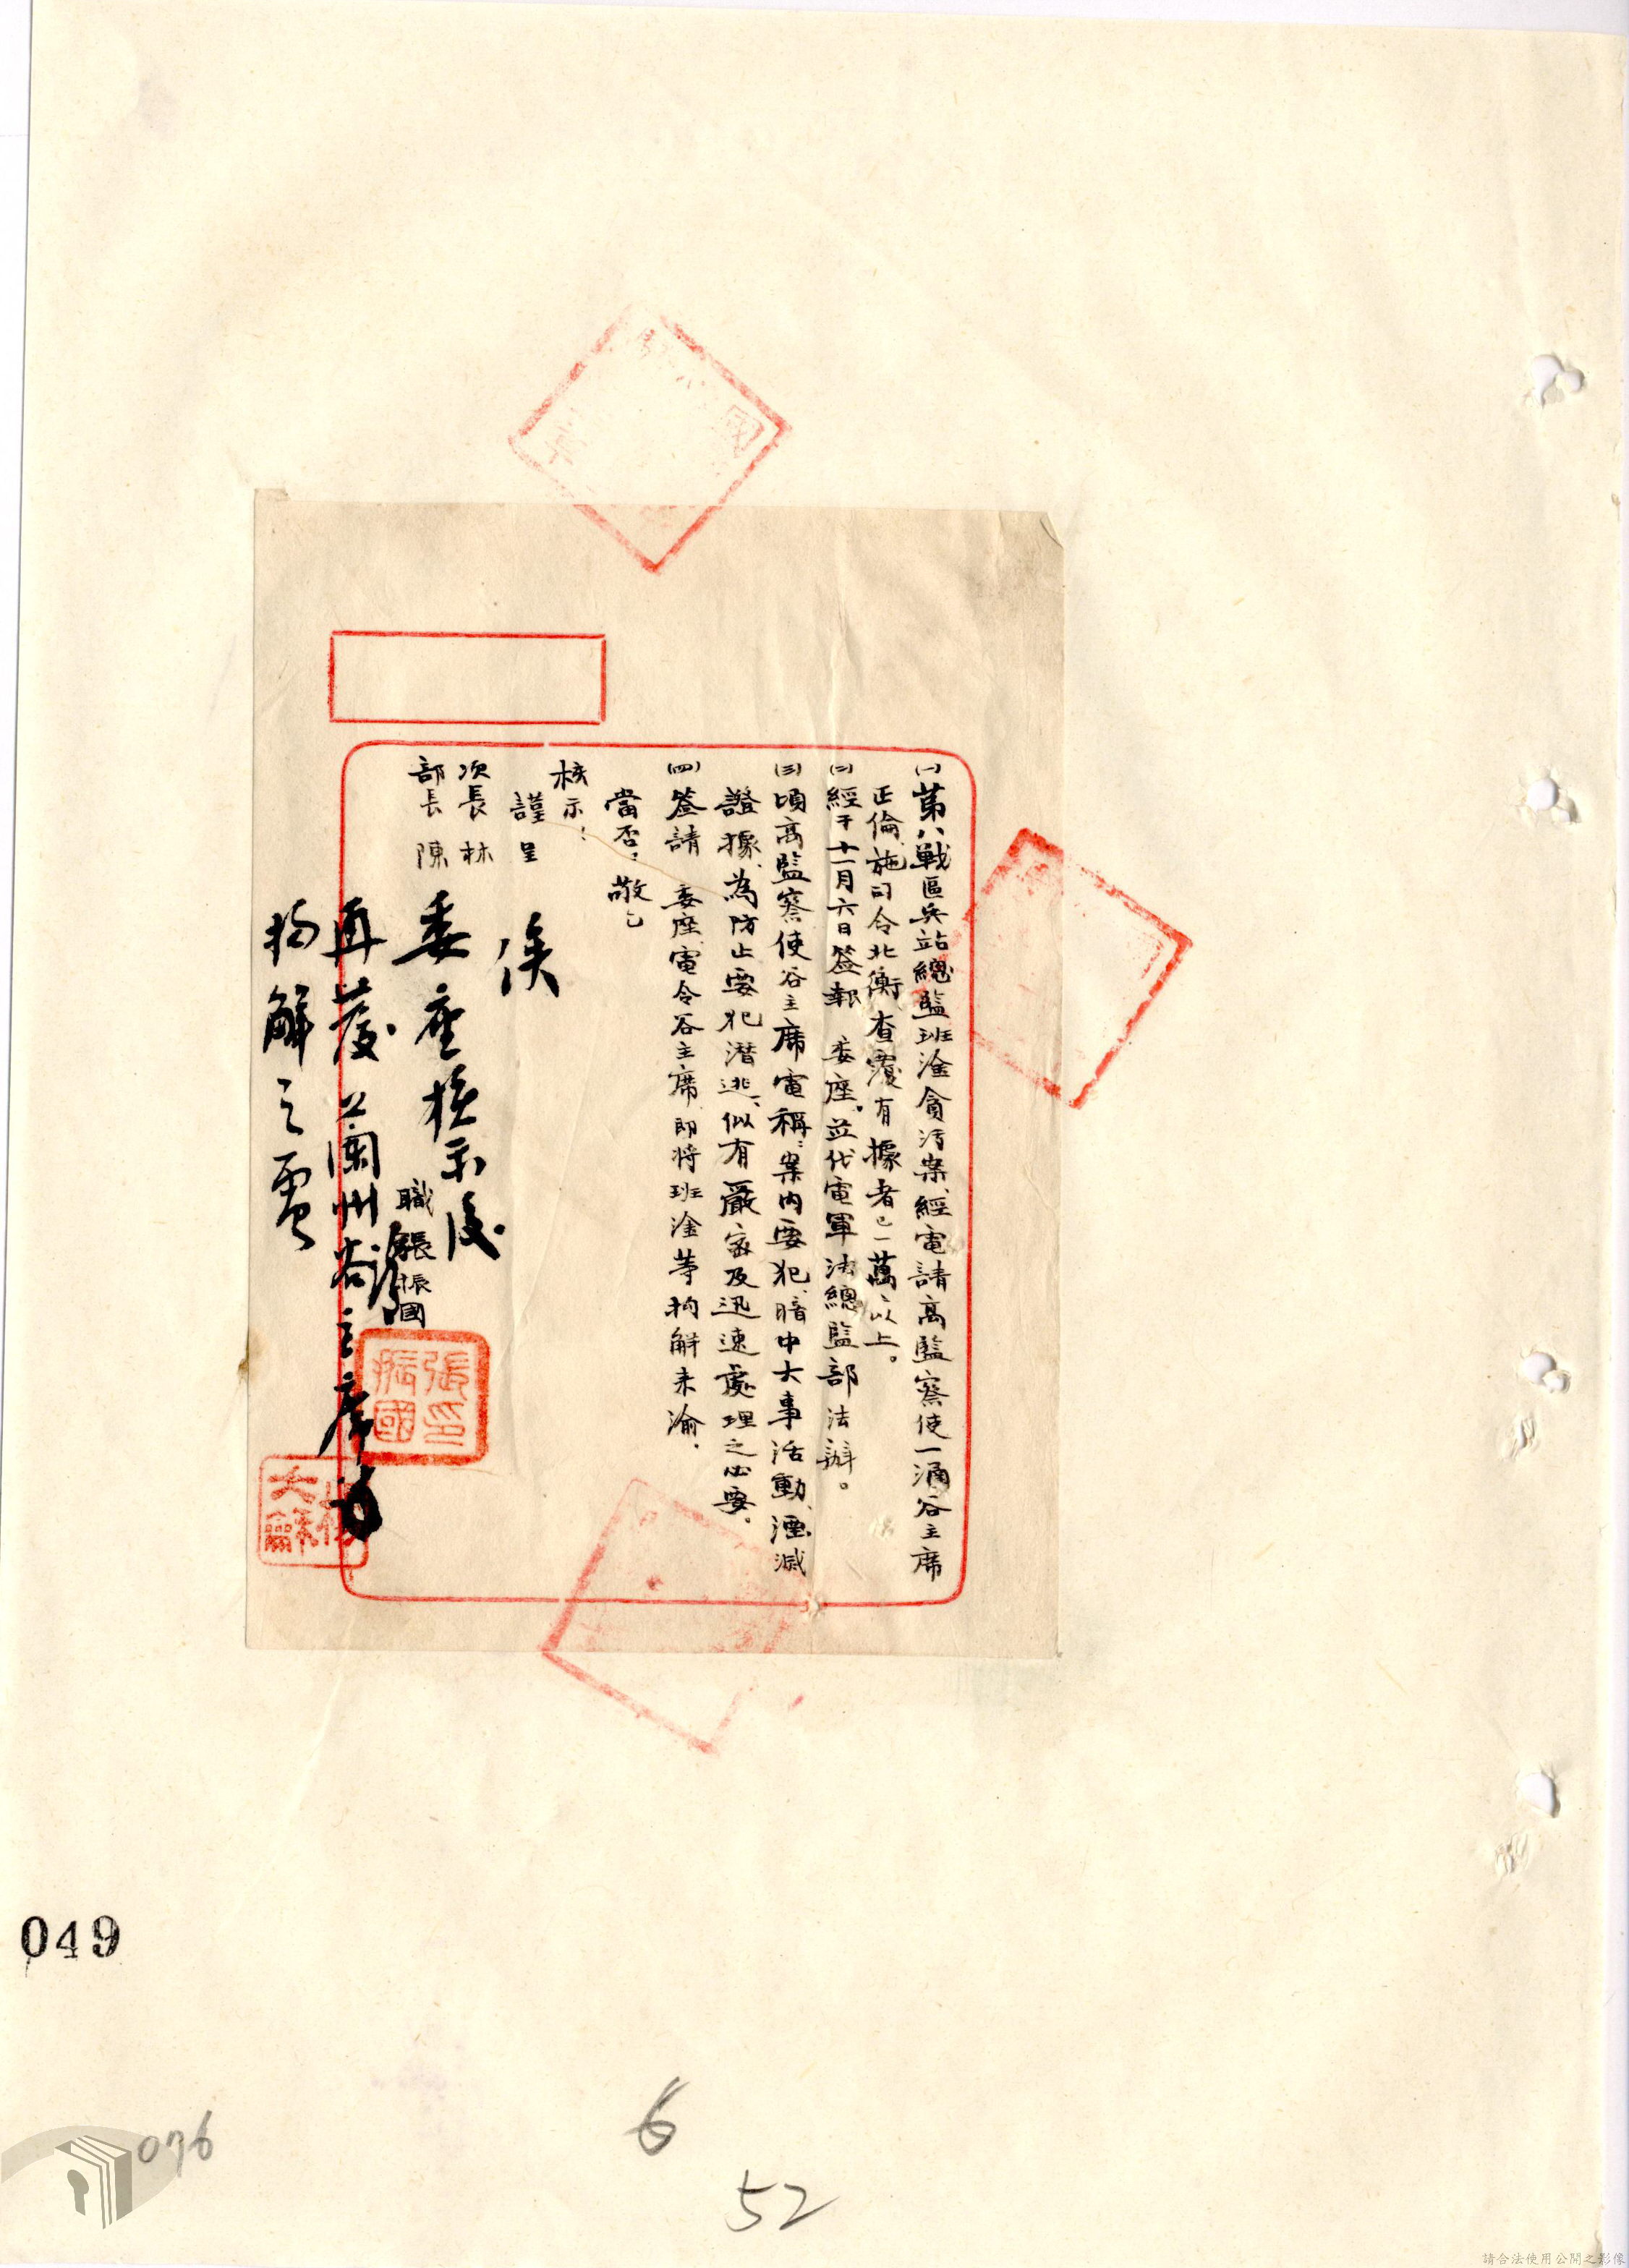 (一)第八戰區兵站總監班淦貪污案、經電請高監察使一涵谷主席
正倫、施司令北衡、查覆有據者已一萬以上。
(二)經于十一月六日簽報 委座。並代電軍法總監部法辦。
(三)頃高監察使谷主席電稱:案内要犯、暗中大事活動、湮滅
證據、為防止要犯潛逃、似有嚴密及迅速處理之必要。
(四)簽請 委座電令谷主席、即將班淦等拘解来渝、
當否、敬乞
核示!
謹呈
次長 林
部長 陳
職 張振國
張振國印
俟
委座核示後
再發蘭州谷主席
拘解之電
049
076
6
52
請合法使用公開之影像